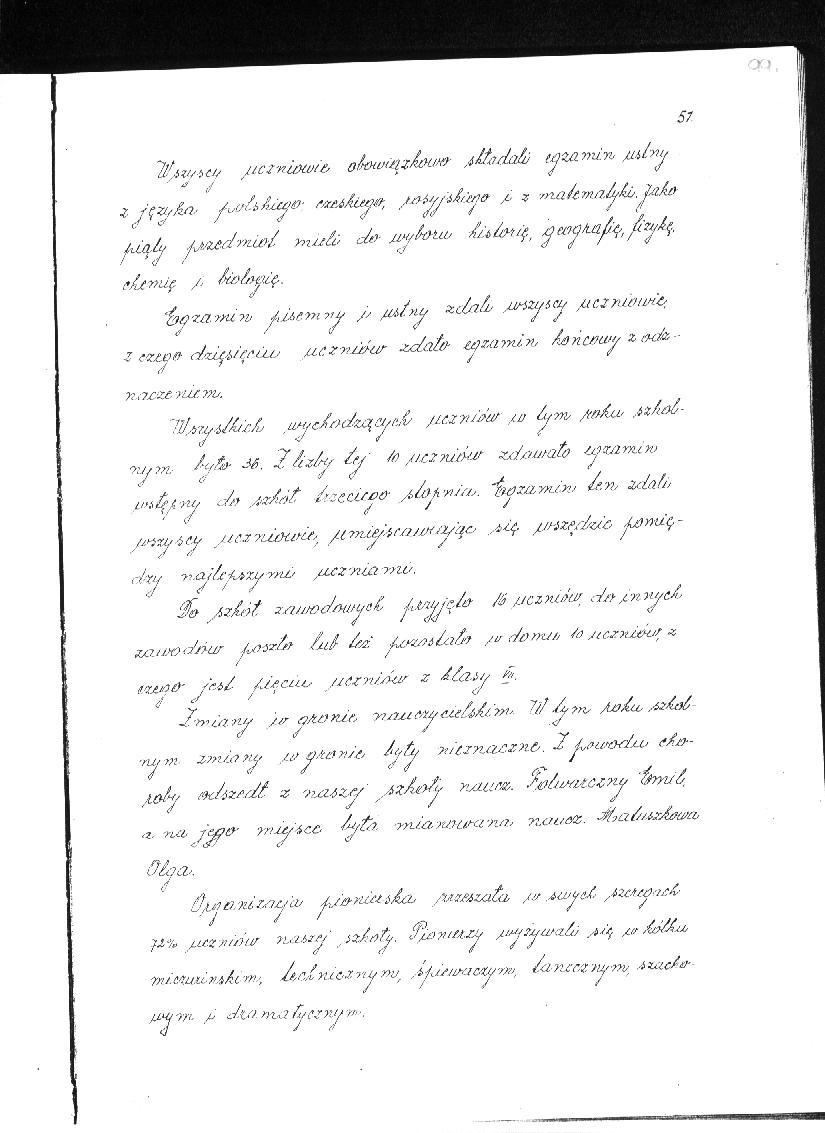 99.
57.
Wszyscy uczniowie obowiązkowo składali egzamin ustny
z języka polskiego, czeskiego, rosyjskiego i z matematyki. Jako
piąty przedmiot mieli do wyboru historię, geografię, fizykę,
chemię i biologię.
Egzamin pisemny i ustny zdali wszyscy uczniowie,
z czego dziesięciu uczniów zdało egzamin końcowy z odz-
naczeniem.
Wszystkich wychodzących uczniów w tym roku szkol-
nym było 36. Z lizby tej 10 uczniów zdawało egzamin
wstępny do szkół trzeciego stopnia. Egzamin ten zdali
wszyscy uczniowie, umiejscawiając się wszędzie pomię-
dzy najlepszymi uczniami.
Do szkół zawodowych przyjęto 16 uczniów, do innych
zawodów poszło lub też pozostało w domu 10 uczniów, z
czego jest pięciu uczniów z klasy VII.
Zmiany w gronie nauczycielskim. W tym roku szkol-
nym zmiany w gronie były nieznaczne. Z powodu cho-
roby odszedł z naszej szkoły naucz. Folwarczny Emil,
a na jego miejsce była mianowana naucz. Matuszkowa
Olga.
Organizacja pionierska zrzeszała w swych szeregach
72% uczniów naszej szkoły. Pionierzy wyżywali się w kółku
miczurinskim, technicznym, śpiewaczym, tanecznym, szacho-
wym i dramatycznym.